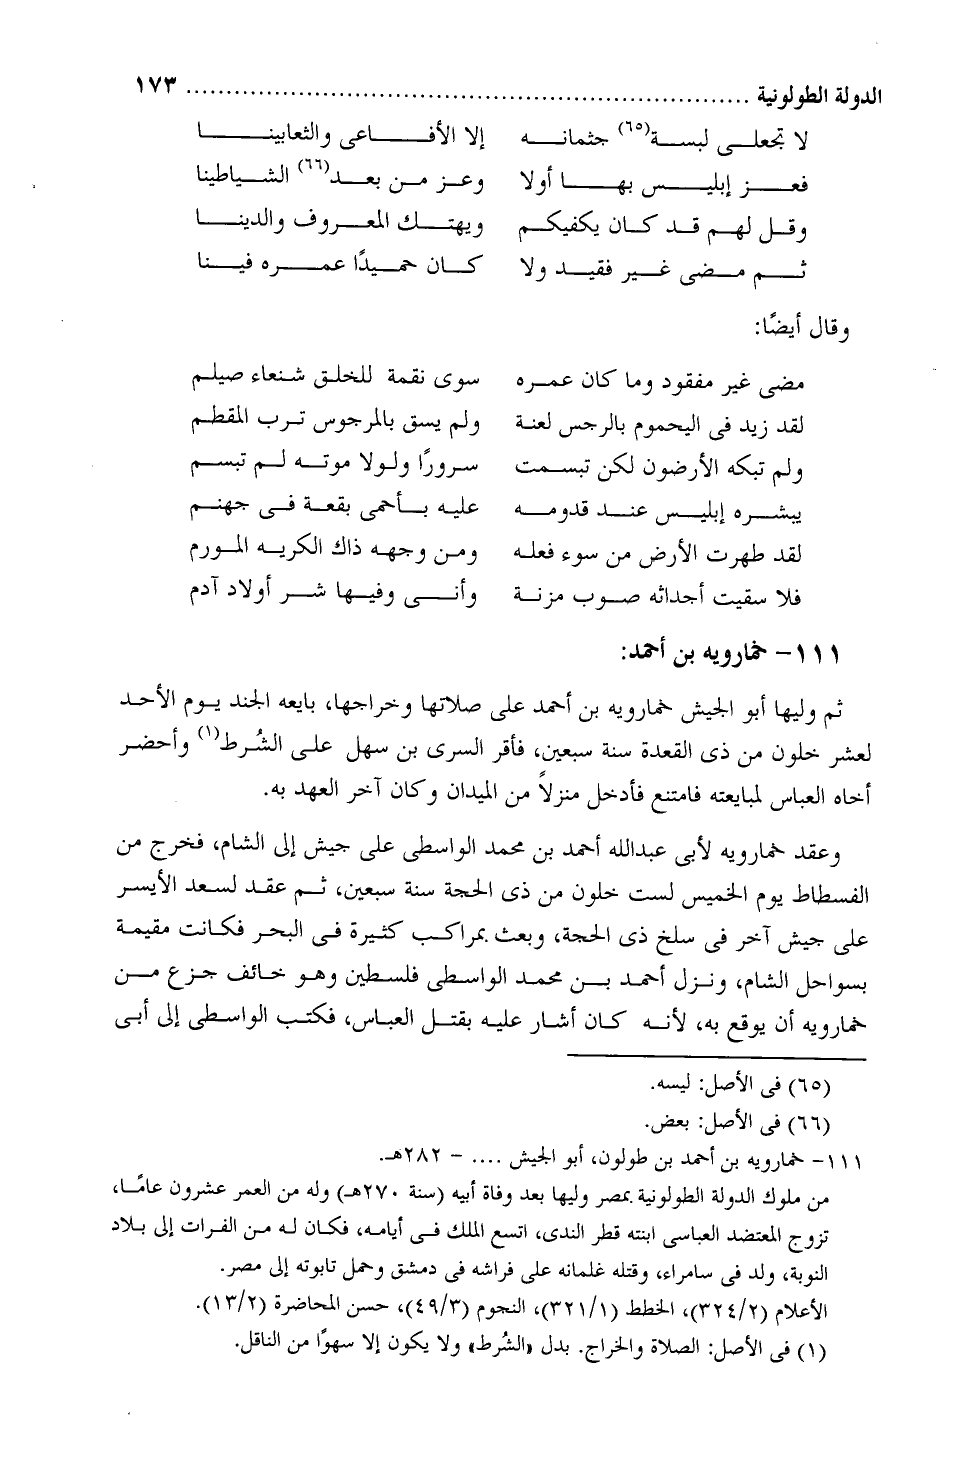 الدولة الطولونية ........................................................................ ١٧٣
لا تجعلى لبسة(٦٥) جثمانه إلا الأفاعى والثعابينا
فعز إبليس بها أولا وعز من بعد(٦٦) الشياطينا
وقل لهم قد كان يكفيكم ويهتك المعروف والدينا
ثم مضى غير فقيد ولا كان حميدًا عمره فينا
وقال أيضًا:
مضى غير مفقود وما كان عمره سوى نقمة للخلق شنعاء صيلم
لقد زيد فى اليحموم بالرجس لعنة ولم يسق بالمرجوس ترب المقطم
ولم تبكه الأرضون لكن تبسمت سرورًا ولولا موته لم تبسم
يبشره إبليس عند قدومه عليه بأحمى بقعة فى جهنم
لقد طهرت الأرض من سوء فعله ومن وجهه ذاك الكريه المورم
فلا سقيت أجداثه صوب مزنة وأنى وفيها شر أولاد آدم
١١١- خمارويه بن أحمد:
ثم وليها أبو الجيش خمارويه بن أحمد على صلاتها وخراجها، بايعه الجند يوم الأحد
لعشر خلون من ذى القعدة سنة سبعين، فأقر السرى بن سهل على الشُرط(١) وأحضر
أخاه العباس لمبايعته فامتنع فأدخل منزلاً من الميدان وكان آخر العهد به.
وعقد خمارويه لأبى عبدالله أحمد بن محمد الواسطى على جيش إلى الشام، فخرج من
الفسطاط يوم الخميس لست خلون من ذى الحجة سنة سبعين، ثم عقد لسعد الأيسر
على جيش آخر فى سلخ ذى الحجة، وبعث بمراكب كثيرة فى البحر فكانت مقيمة
بسواحل الشام، ونزل أحمد بن محمد الواسطى فلسطين وهو خائف جزع من
خمارويه أن يوقع به، لأنه كان أشار عليه بقتل العباس، فكتب الواسطى إلى أبى
(٦٥) فى الأصل: ليسه.
(٦٦) فى الأصل: بعض.
١١١- خمارويه بن أحمد بن طولون، أبو الجيش .... - ٢٨٢هـ.
من ملوك الدولة الطولونية بمصر وليها بعد وفاة أبيه (سنة ٢٧٠هـ) وله من العمر عشرون عامًا،
تزوج المعتضد العباسى ابنته قطر الندى، اتسع الملك فى أيامه، فكان له من الفرات إلى بلاد
النوبة، ولد فى سامراء، وقتله غلمانه على فراشه فى دمشق وحمل تابوته إلى مصر.
الأعلام (٣٢٤/٢)، الخطط (٣٢١/١)، النجوم (٤٩/٣)، حسن المحاضرة (١٣/٢).
(١) فى الأصل: الصلاة والخراج. بدل «الشُرط» ولا يكون إلا سهوًا من الناقل.